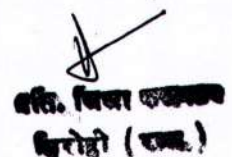 अति. जिला कलक्टर
सिरोही ( राज. )